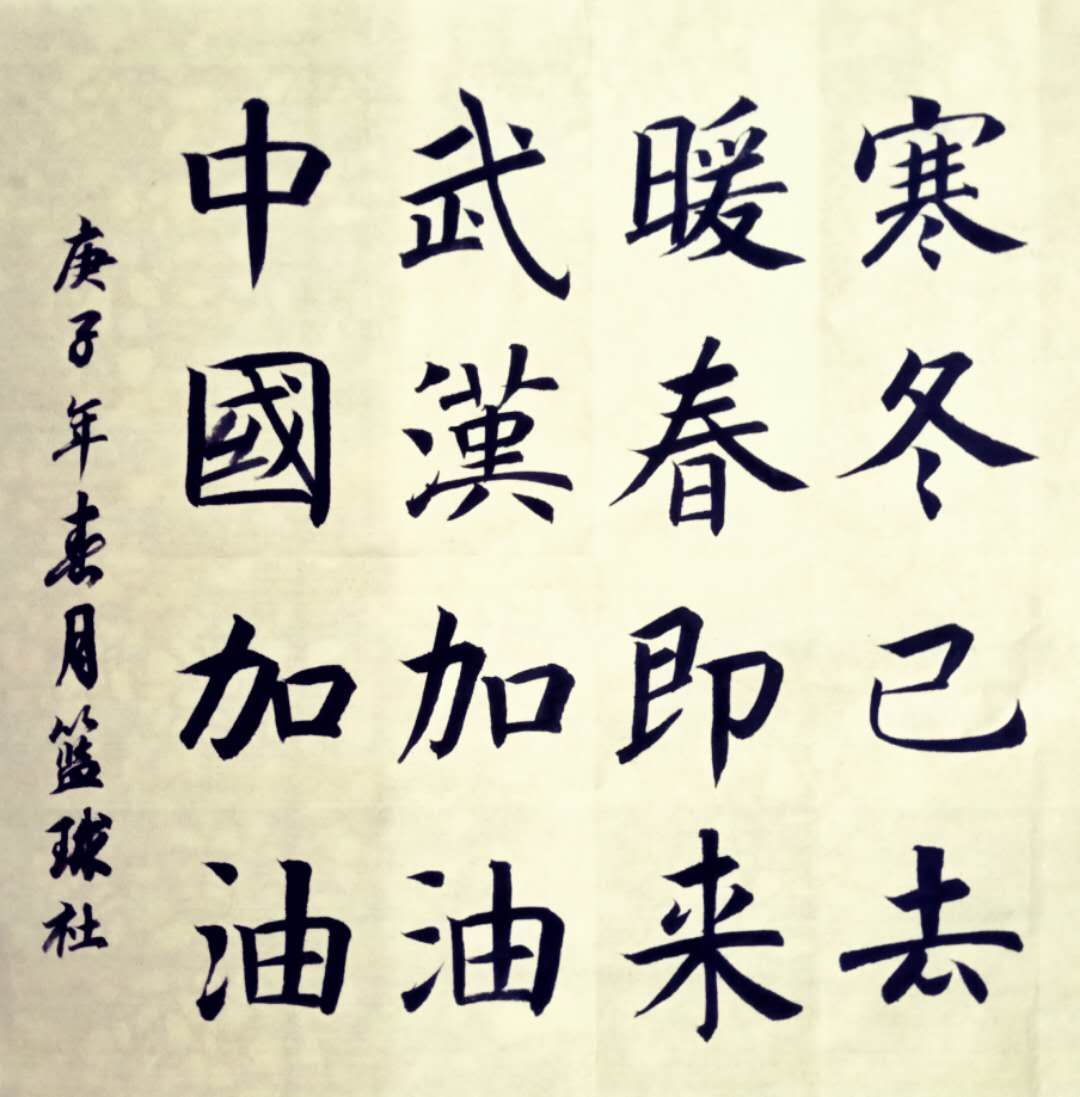 寒冬已去
暖春即来
武漢加油
中國加油
庚子年春月籃球社